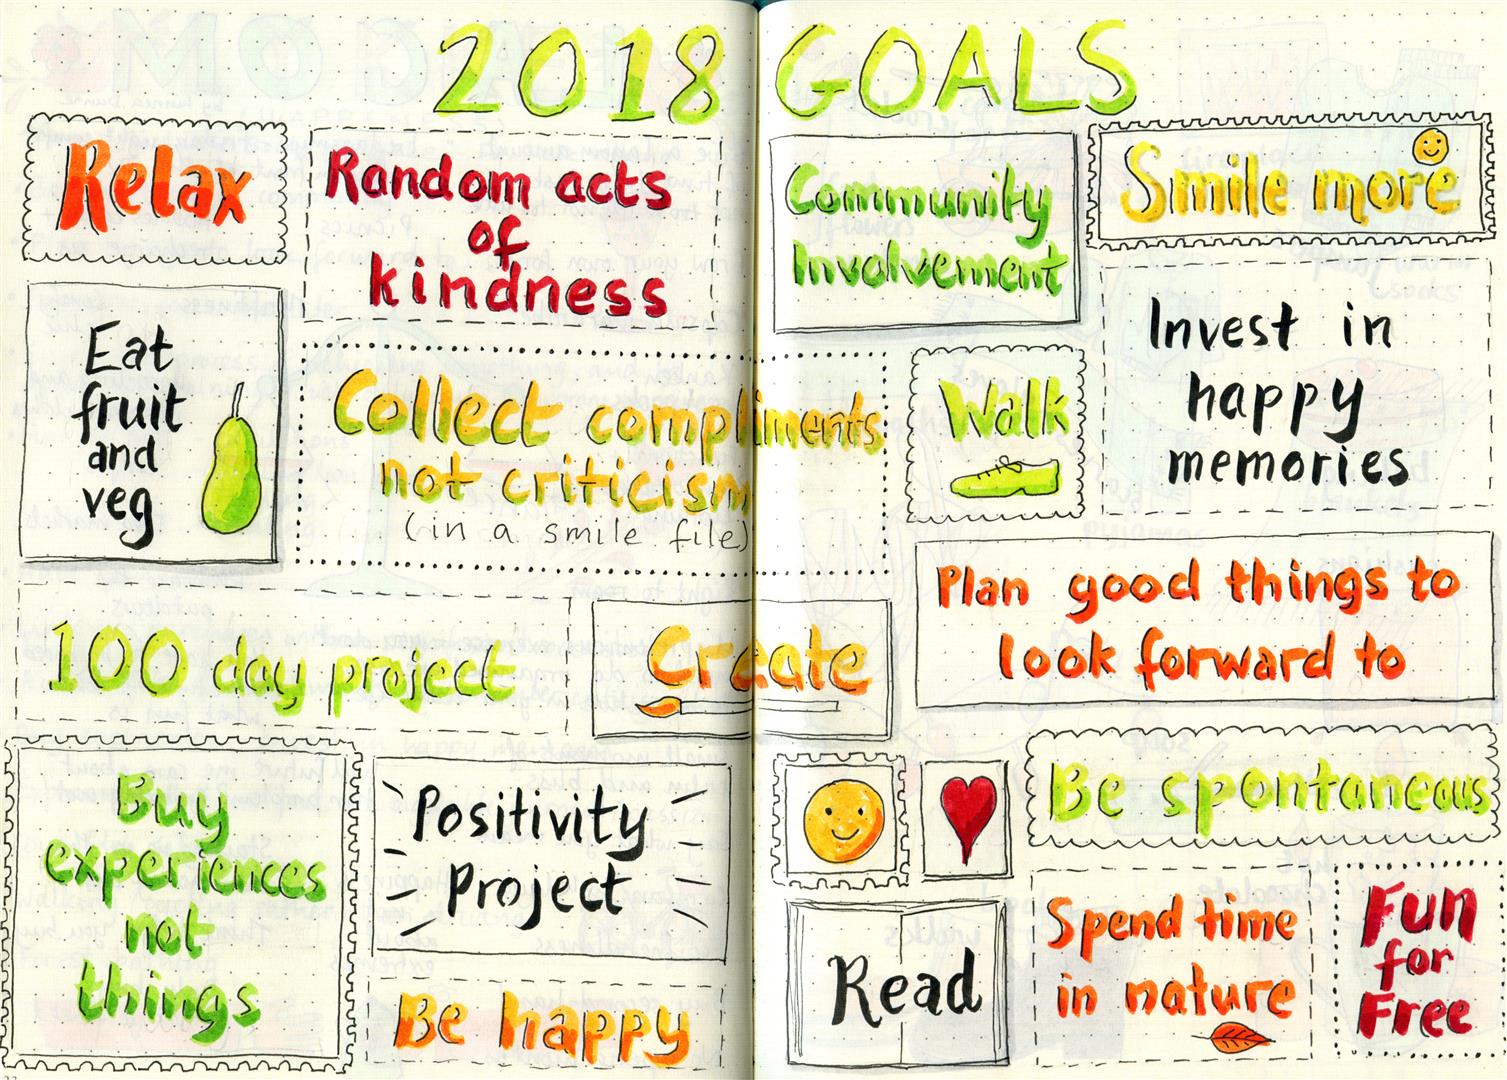 2018 GOALS
Relax
Random acts
of
kindness
Community
Involvement
Smile more
Eat
fruit
and
veg
Collect compliments
not criticism
(in a smile file)
Walk
Invest in
happy
memories
100 day project
Create
Plan good things to
look forward to
Buy
experiences
not
things
Positivity
Project
Be happy
Be spontaneous
Read
Spend time
in nature
Fun
for
Free